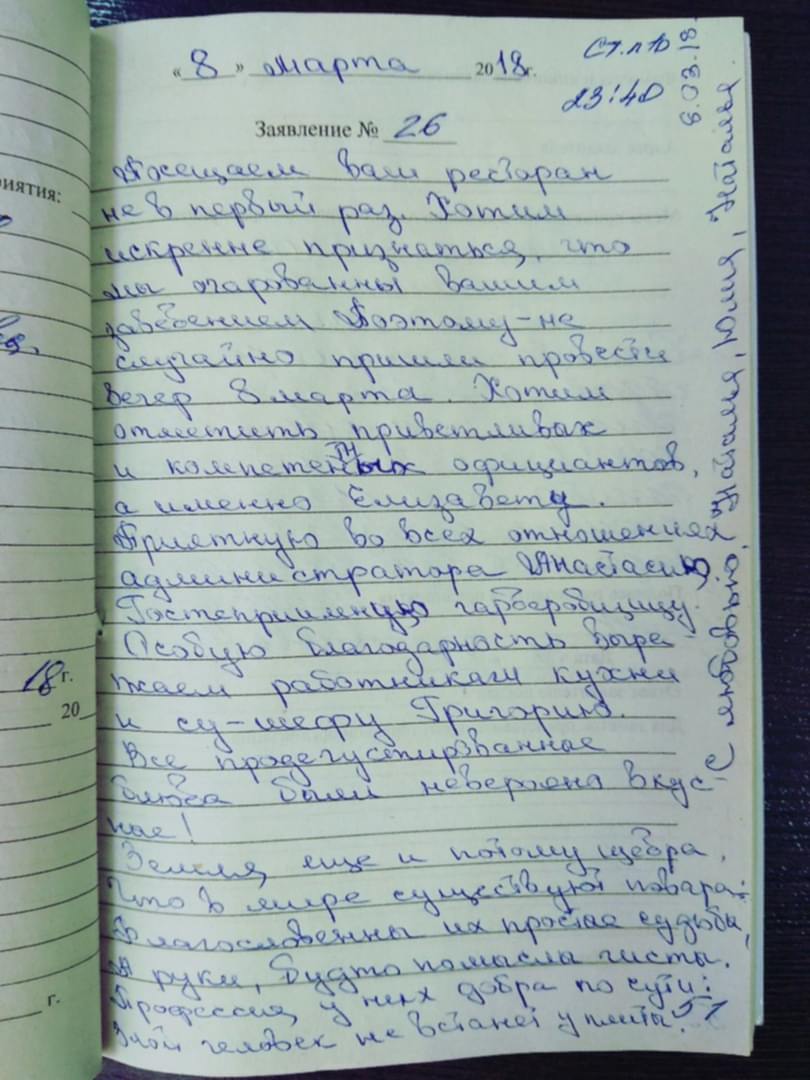 « 8 » марта 2018г.
Ст. n 10
23:40
Заявление № 26
Посещаем ваш ресторан
не в первый раз. Хотим
искренне признаться, что
мы очарованны вашим
заведением Поэтому-не
случайно пришли провести
вечер 8 марта. Хотим
отметить приветливых
и компетентных официантов,
а именно Елизавету.
Приятную во всех отношениях
администратора Анастасию.
Гостеприимную гардеробщицу.
Особую благодарность выра
жаем работникам кухни
и су-шефу Григорию.
Все продегустированные
блюда были неверояно вкус-
ные!
Земля, еще и потому щедра,
Что в мире существуют повара:
Благословенны их простые судьбы,
А руки, будто помыслы чисты.
Профессия у них добра по сути:
Злой человек не встанет у плиты. 51
С любовью, Наталья, Юлия, Наталья.
8.03.18
риятия:
18 г.
20
г.